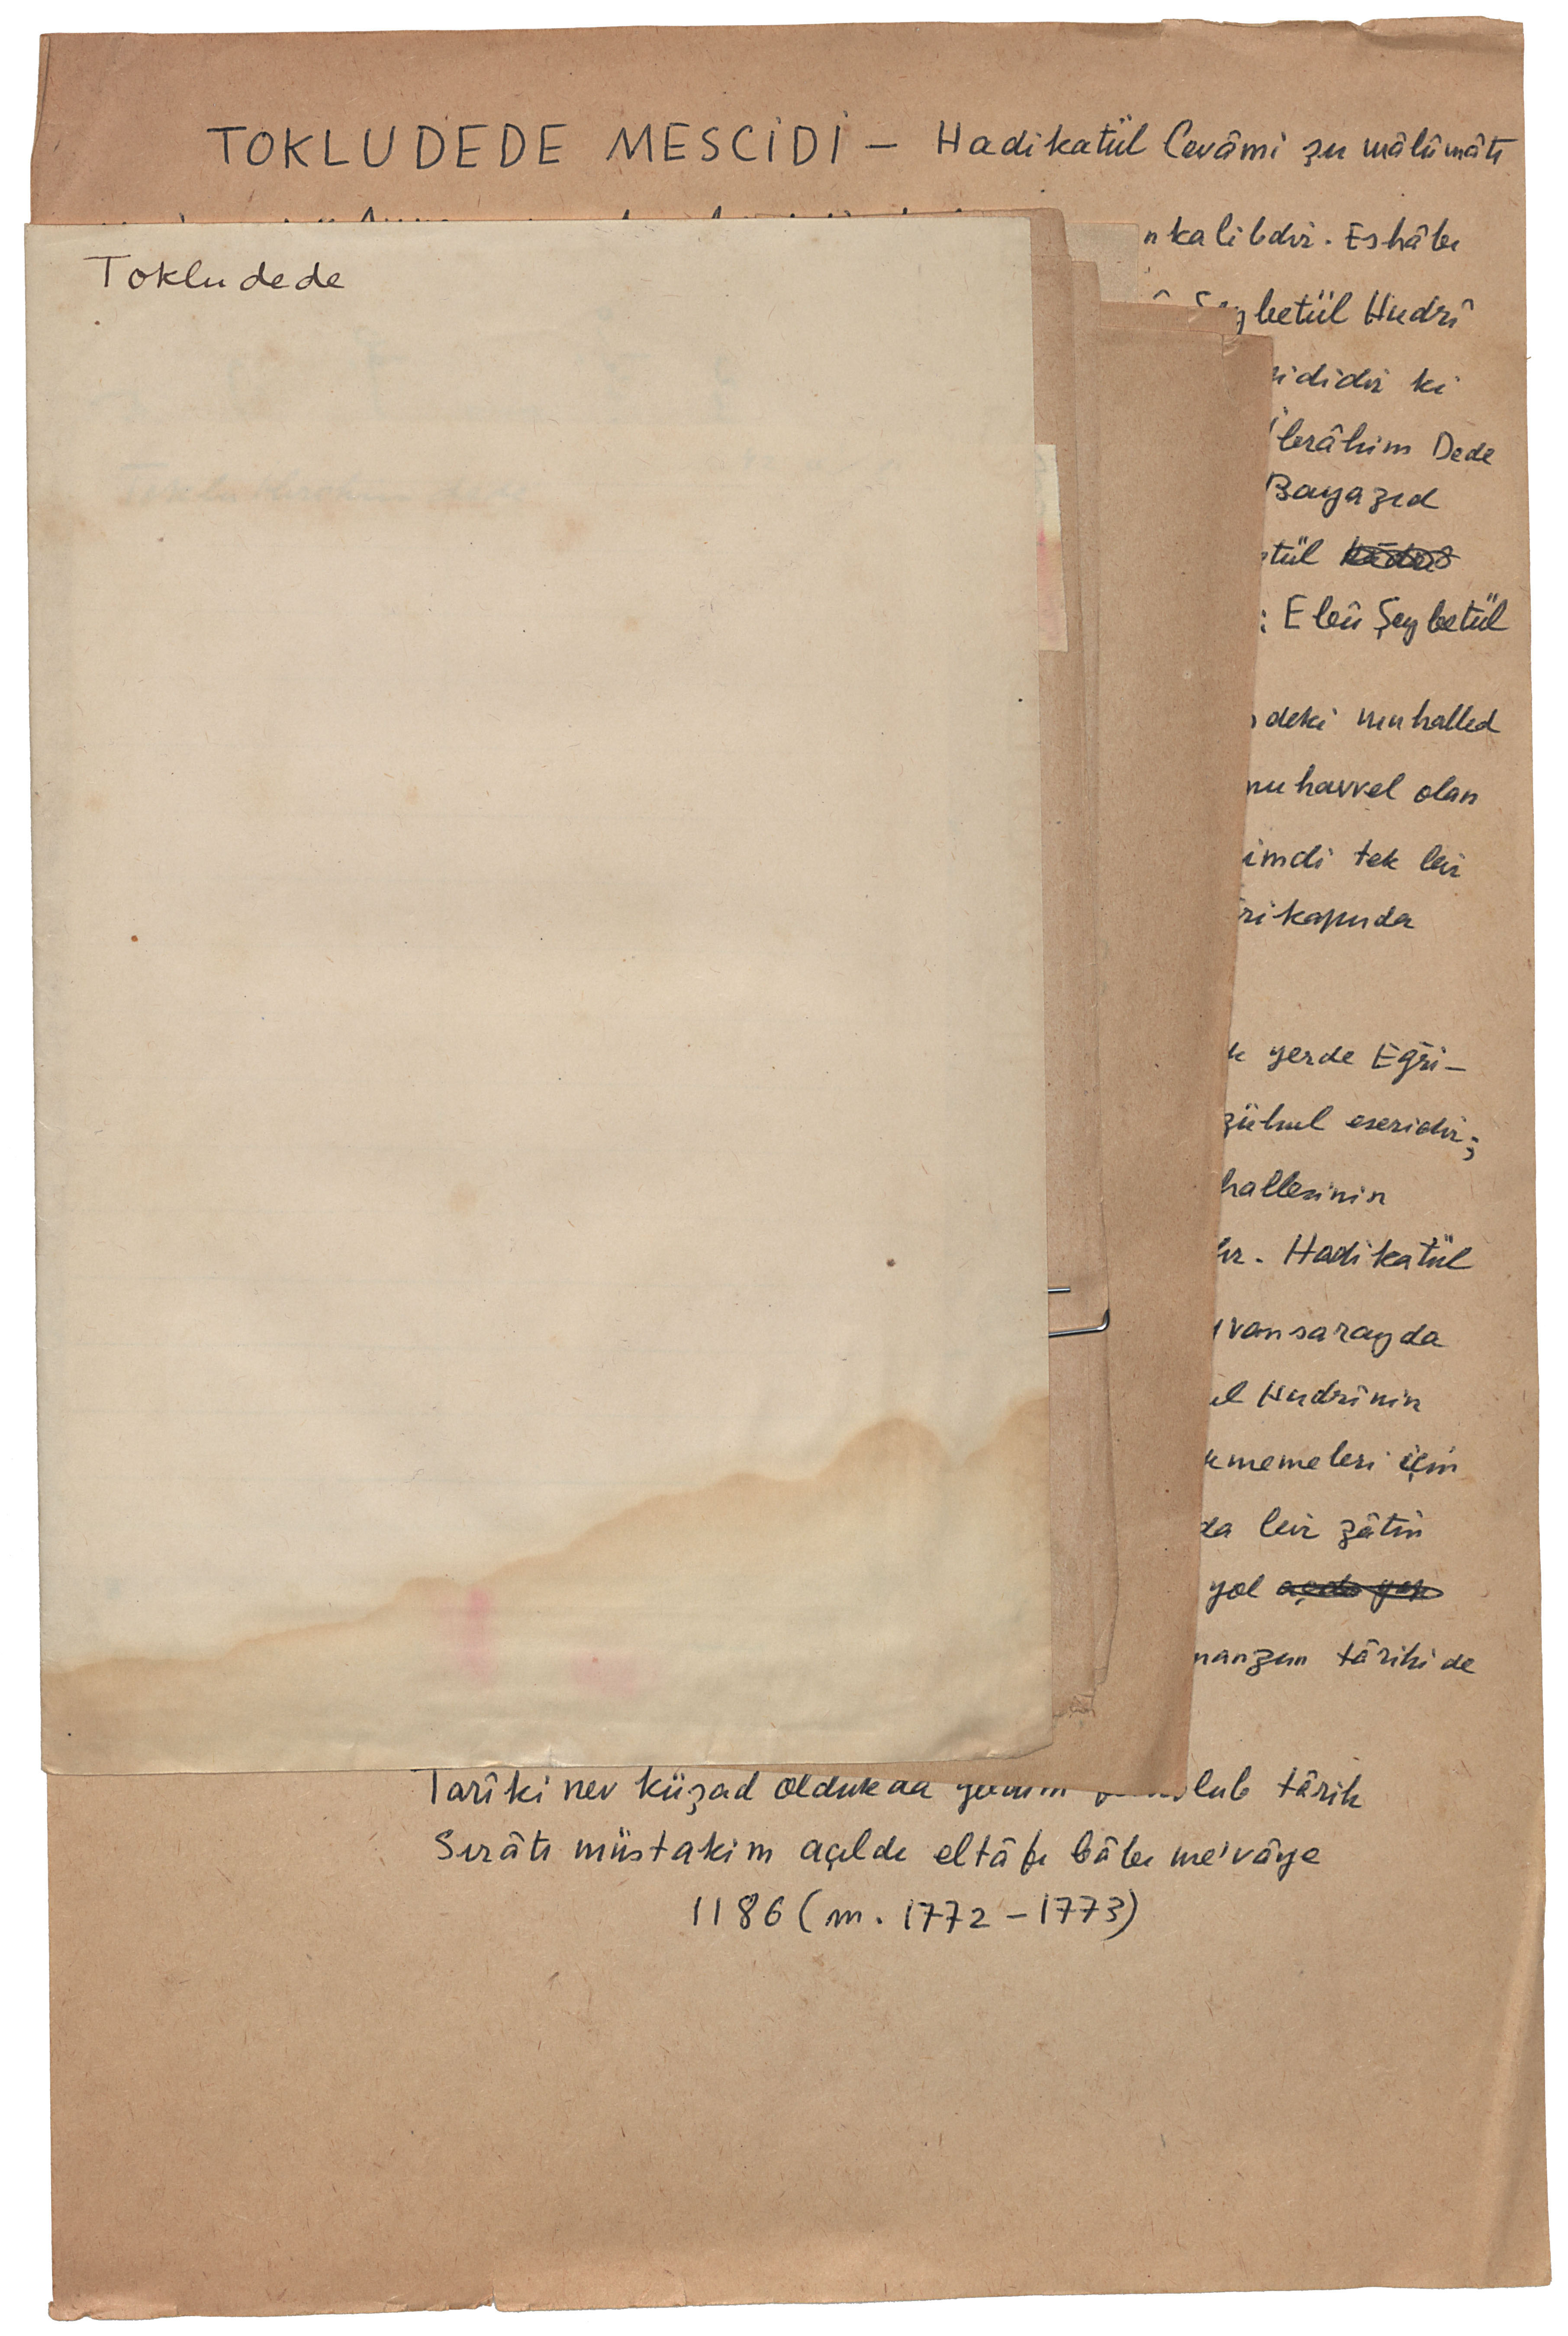 TOKLUDEDE MESCİDİ — Hadikatül Cevâmi şu mâlûmâtı
Tokludede
nkalibdir. Eshâbı
Şeybetül Hudrî
ididir ki
İbrâhim Dede
Bayazıd
tül
: Ebû Şeybetül
deki muhalled
muhavvel olan
imdi tek bir
rikapuda
k yerde Eğri–
zühul eseridir;
hallesinin
ır. Hadikatül
yvansarayda
ül Hudrînin
kmemeleri için
da bir zâtın
yol
manzum târihi de
Tarîki nev küşad oldukda târih
Sırâtı müstakim açıldı eltâfı bâbı me'vâye
1186 (m. 1772 – 1773)